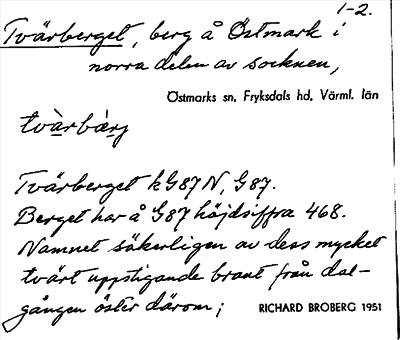 1-2.
Tvärberget, berg å Östmark i
norra delen av socknen,
Östmarks sn, Fryksdals hd, Värml. län
tvàrbæ̀rj
Tvärberget kG87N, G87.
Berget har å G87 höjdsiffra 468.
Namnet säkerligen av dess mycket
tvärt uppstigande brant från dal-
gången öster därom;
RICHARD BROBERG 1951